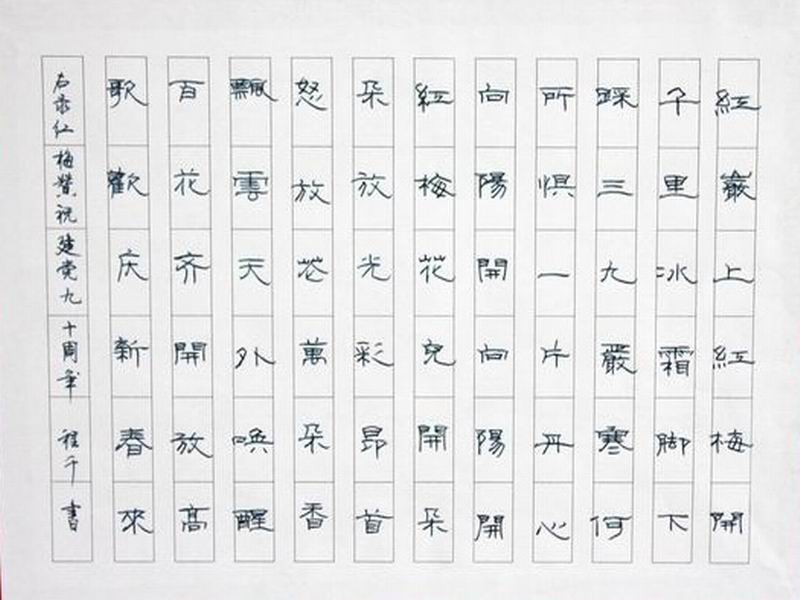 紅巖上紅梅開
千里冰霜脚下
踩三九嚴寒何
所惧一片丹心
向陽開向陽開
紅梅花兒開朵
朵放光彩昂首
怒放花萬朵香
飄雲天外喚醒
百花齐開放高
歌歡庆新春來
右录红梅赞祝建党九十周年 程千書